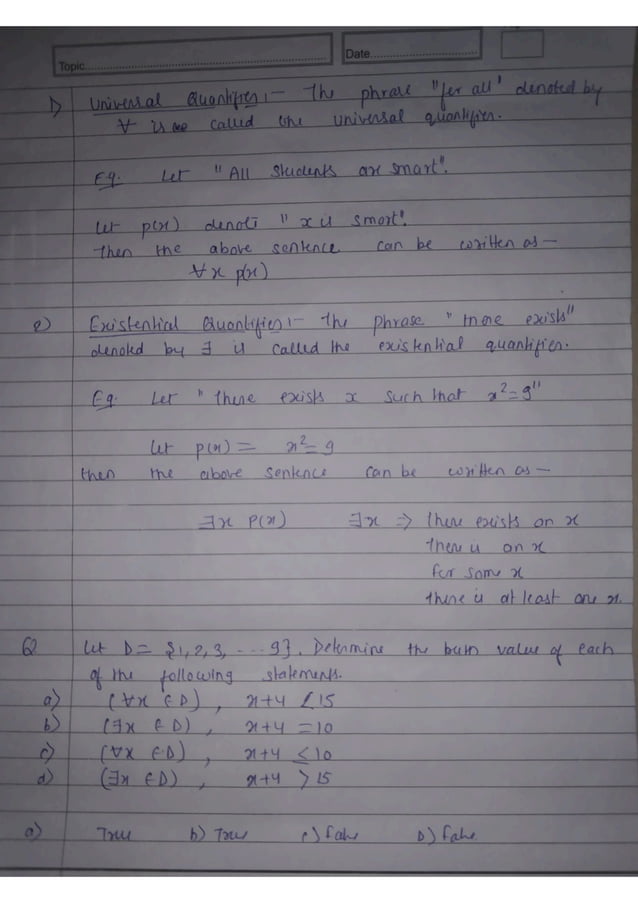 Topic........ Date........
1) Universal Quantifier :- The phrase "for all" denoted by
∀ is called the universal quantifier.
Eg. Let "All students are smart".
Let p(x) denote "x is smart".
Then the above sentence can be written as —
∀x p(x)
2) Existential Quantifier :- The phrase "there exists"
denoted by ∃ is called the existential quantifier.
Eg. Let "there exists x such that x²=9"
Let p(x) = x²=9
then the above sentence can be written as —
∃x P(x) ∃x ⇒ there exists an x
there is an x
for some x
there is at least one x.
Q Let D = {1,2,3, ... 9}. Determine the truth value of each
of the following statements.
a) (∀x ∈ D) , x+4 < 15
b) (∃x ∈ D) , x+4 = 10
c) (∀x ∈ D) , x+4 ≤ 10
d) (∃x ∈ D) , x+4 > 15
a) True b) True c) false D) false